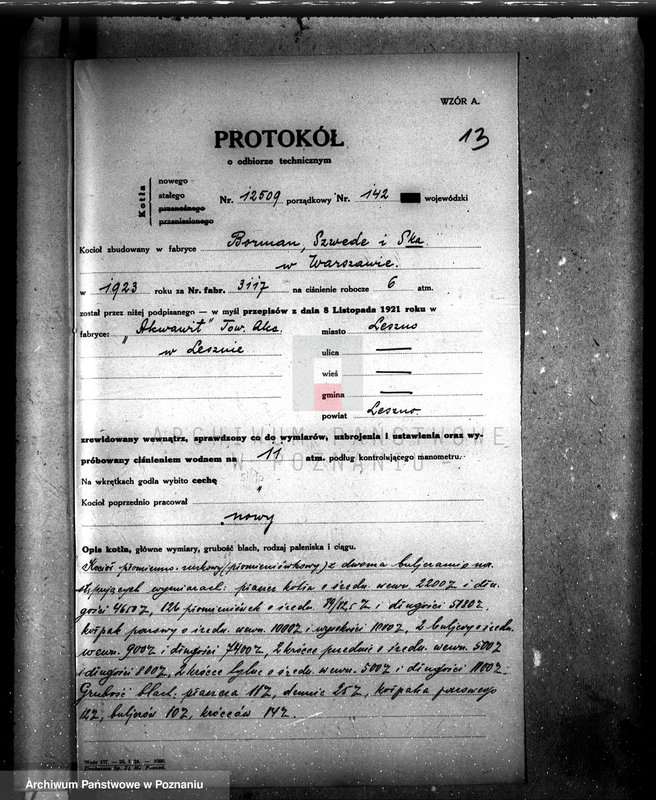 WZÓR A.
13
PROTOKÓŁ
o odbiorze technicznym
Kotła
nowego
stałego
przenośnego
przeniesionego
Nr. 12509 porządkowy Nr. 142 wojewódzki
Kocioł zbudowany w fabryce Borman, Szwede i Ska
w Warszawie.
w 1923 roku za Nr. fabr. 3117 na ciśnienie robocze 6 atm.
został przez niżej podpisanego — w myśl przepisów z dnia 8 Listopada 1921 roku w
fabryce: „Akwawit" Tow. Akc. miasto Leszno
w Lesznie ulica —
wieś —
gmina —
powiat Leszno
zrewidowany wewnątrz, sprawdzony co do wymiarów, uzbrojenia i ustawienia oraz wy-
próbowany ciśnieniem wodnem na 11 atm. podług kontrolującego manometru.
Na wkrętkach godła wybito cechę "
Kocioł poprzednio pracował
nowy
Opis kotła, główne wymiary, grubość blach, rodzaj paleniska i ciągu.
Kocioł płomienno-rurkowy (płomieniówkowy) z dwoma buljerami o na-
stępujących wymiarach: płaszcz kotła o średn. wewn. 2200 i dłu-
gości 4650, 126 płomieniówek o średn. i długości
kołpak parowy o średn. wewn. 1000 i wysokości 1000, 2 buljery o średn.
wewn. 900 i długości 7400, 2 króćce przednie o średn. wewn. 500
i długości 800, 2 króćce tylne o średn. wewn. 500 i długości
Grubość blach: płaszcza dennic 25, kołpaka parowego
12, buljerów 10, króćców 14.
Wzór 177. — 1000.
ARCHIWUM PAŃSTWOWE
W POZNANIU
Archiwum Państwowe w Poznaniu